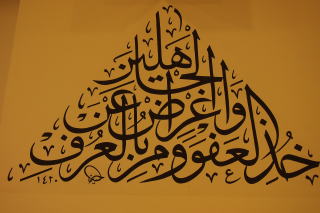 خُذِ العَفْوَ وَأْمُرْ بِالْعُرْفِ
وَأَعْرِضْ عَنِ
الْجَاهِلِينَ
١٤٢٠